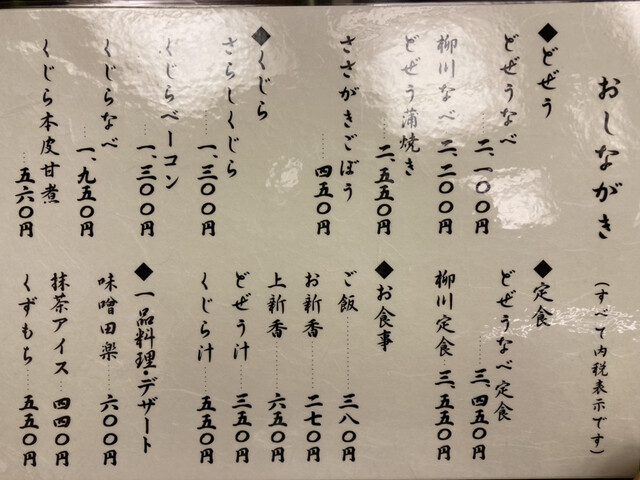 おしながき
(すべて内税表示です)
◆どぜう
どぜうなべ……二、一〇〇円
柳川なべ…二、二〇〇円
どぜう蒲焼き…二、五五〇円
ささがきごぼう……四五〇円
◆くじら
さらしくじら……一、三〇〇円
くじらベーコン…一、三〇〇円
くじらなべ……一、九五〇円
くじら本皮甘煮…五六〇円
◆定食
どぜうなべ定食…三、四五〇円
柳川定食…三、五五〇円
◆お食事
ご飯……三八〇円
お新香……二七〇円
上新香……六五〇円
どぜう汁……三五〇円
くじら汁……五五〇円
◆一品料理・デザート
味噌田楽……六〇〇円
抹茶アイス…四四〇円
くずもち……五五〇円